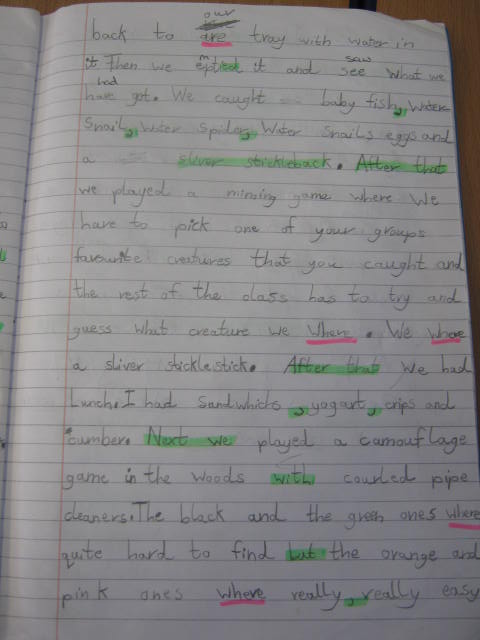 our
back to are tray with water in
it Then we emptied it and see saw what we
had
have got. We caught baby fish, water
Snail, water spider, Water snails eggs and
a sliver stickleback. After that
we played a miming game where we
have to pick one of your groups
favourite creatures that you caught and
the rest of the class has to try and
guess what creature we where. We where
a sliver sticklestick. After that we had
Lunch. I had Sandwhichs, yogart, crips and
cumber. Next we played a camouflage
game in the woods with courled pipe
cleaners. The black and the green ones where
quite hard to find but the orange and
pink ones where really, really easy